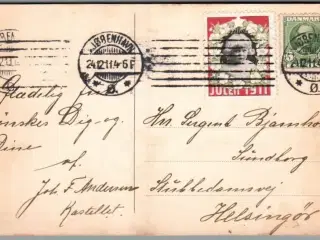 KJØBENHAVN
24.12.11.4-5 F
Ø.
JULEN 1911
DANMARK
Glædelig
ønskes Dig og
Dine
af
Joh. F. Andersen
Kastellet.
Hr. Sergent Bjarnhof
Sundborg
Stubbedamsvej
Helsingör